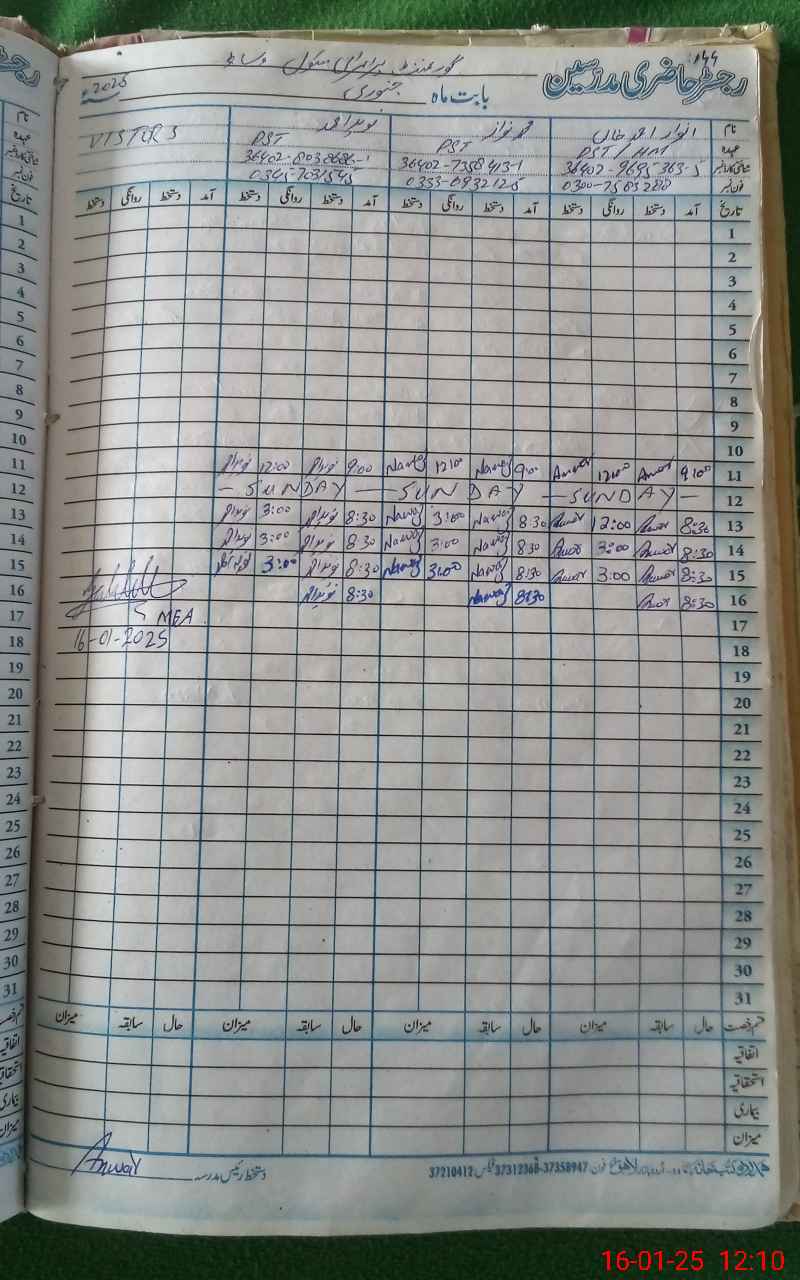 رجسٹر حاضری مدرسین
گورنمنٹ پرائمری سکول
بابت ماہ جنوری 2025
نام انوار احمد خاں محمد نواز نوید احمد VISTORS
عہدہ PST / HM PST PST
36402-9695363-5 36402-7358413-1 36402-8038686-1
فون نمبر 0300-7583288 0333-6932125
تاریخ آمد دستخط روانگی دستخط آمد دستخط روانگی دستخط آمد دستخط روانگی دستخط آمد دستخط روانگی دستخط
1
2
3
4
5
6
7
8
9
10
11 9:00 Anwar 12:00 Anwar 9:00 Nawaz 12:00 Nawaz 9:00 نوید احمد 12:00 نوید احمد
12 — SUNDAY — SUNDAY — SUNDAY —
13 8:30 Anwar 12:00 Anwar 8:30 Nawaz 3:00 Nawaz 8:30 نوید احمد 3:00 نوید احمد
14 8:30 Anwar 3:00 Anwar 8:30 Nawaz 3:00 Nawaz 8:30 نوید احمد 3:00 نوید احمد
15 8:30 Anwar 3:00 Anwar 8:30 Nawaz 3:00 Nawaz 8:30 نوید احمد 3:00 نوید احمد
16 8:30 Anwar 8:30 Nawaz 8:30 نوید احمد
17 MEA
18 16-01-2025
19
20
21
22
23
24
25
26
27
28
29
30
31
قسم رخصت حال سابقہ میزان حال سابقہ میزان حال سابقہ میزان حال سابقہ میزان
اتفاقیہ
استحقاقیہ
بیماری
میزان
دستخط رئیس مدرسہ Anwar
فون 37358947-37312368 فیکس 37210412
16-01-25 12:10